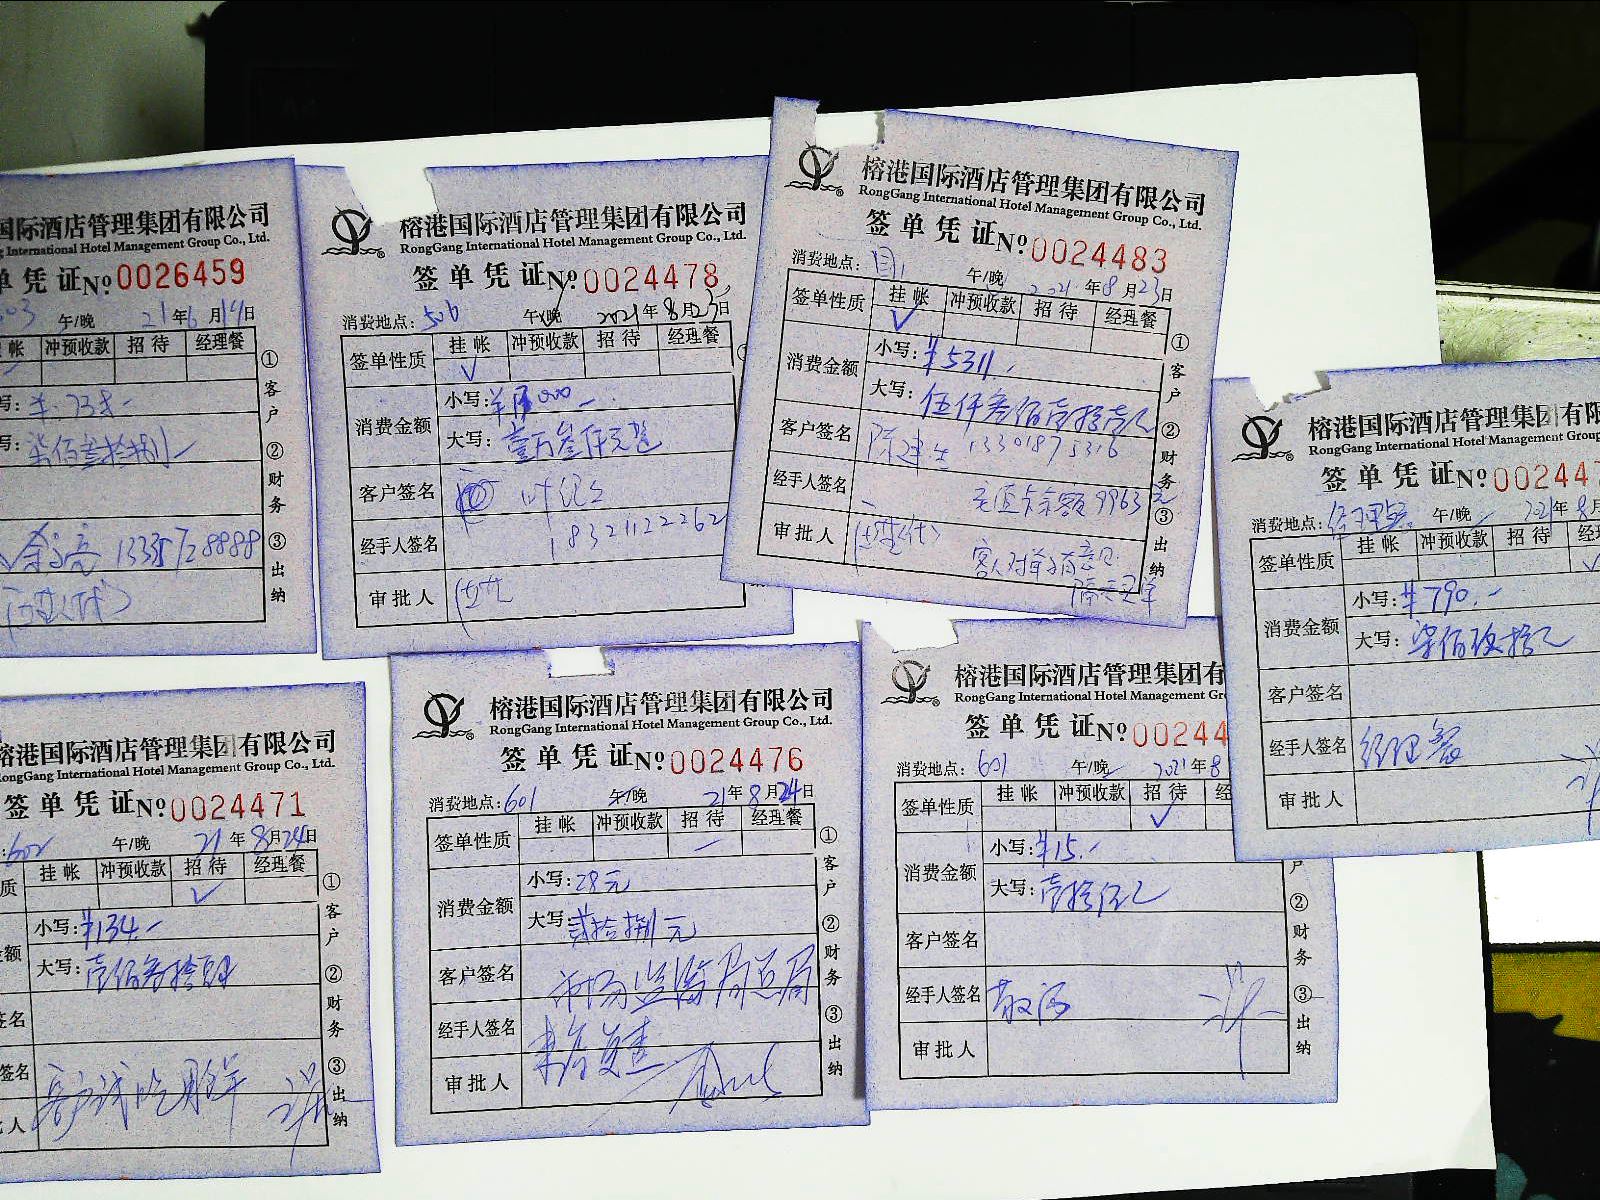 国际酒店管理集团有限公司
International Hotel Management Group Co., Ltd.
单凭证 No: 0026459
午/晚 21年6月14日
帐 冲预收款 招待 经理餐
写: 738-
写: 柒佰叁拾捌
1335728888
① 客户 ② 财务 ③ 出纳
榕港国际酒店管理集团有限公司
RongGang International Hotel Management Group Co., Ltd.
签单凭证 No: 0024478
消费地点: 506 午/晚 2021年8月23日
签单性质 挂帐 冲预收款 招待 经理餐
消费金额 小写:
大写: 壹万叁仟元整
客户签名
18321122262
经手人签名
审批人
榕港国际酒店管理集团有限公司
RongGang International Hotel Management Group Co., Ltd.
签单凭证 No: 0024483
消费地点: 午/晚 2021年8月23日
签单性质 挂帐 冲预收款 招待 经理餐
消费金额 小写: ¥5311.-
大写: 伍仟叁佰壹拾壹元
客户签名 陈建生 13301875316
经手人签名 余额9963元
审批人 客人对单有意见
① 客户 ② 财务 ③ 出纳
榕港国际酒店管理集团有限
RongGang International Hotel Management Group
签单凭证 No: 00244
消费地点: 午/晚 2021年8月
签单性质 挂帐 冲预收款 招待 经
消费金额 小写: ¥790.-
大写: 柒佰玖拾元
客户签名
经手人签名 经理餐
审批人
榕港国际酒店管理集团有限公司
RongGang International Hotel Management Group Co., Ltd.
签单凭证 No: 0024471
602 午/晚 21年8月24日
质 挂帐 冲预收款 招待 经理餐
金额 小写: ¥134.-
大写: 壹佰叁拾肆
签名
签名 客户试吃月饼
人
① 客户 ② 财务 ③ 出纳
榕港国际酒店管理集团有限公司
RongGang International Hotel Management Group Co., Ltd.
签单凭证 No: 0024476
消费地点: 601 午/晚 21年8月24日
签单性质 挂帐 冲预收款 招待 经理餐
消费金额 小写: 28元
大写: 贰拾捌元
客户签名 市场监督局
经手人签名
审批人
① 客户 ② 财务 ③ 出纳
榕港国际酒店管理集团有
RongGang International Hotel Management Gr
签单凭证 No: 00244
消费地点: 601 午/晚 2021年8
签单性质 挂帐 冲预收款 招待 经
消费金额 小写: ¥15.-
大写: 壹拾伍元
客户签名
经手人签名
审批人
户 ② 财务 ③ 出纳